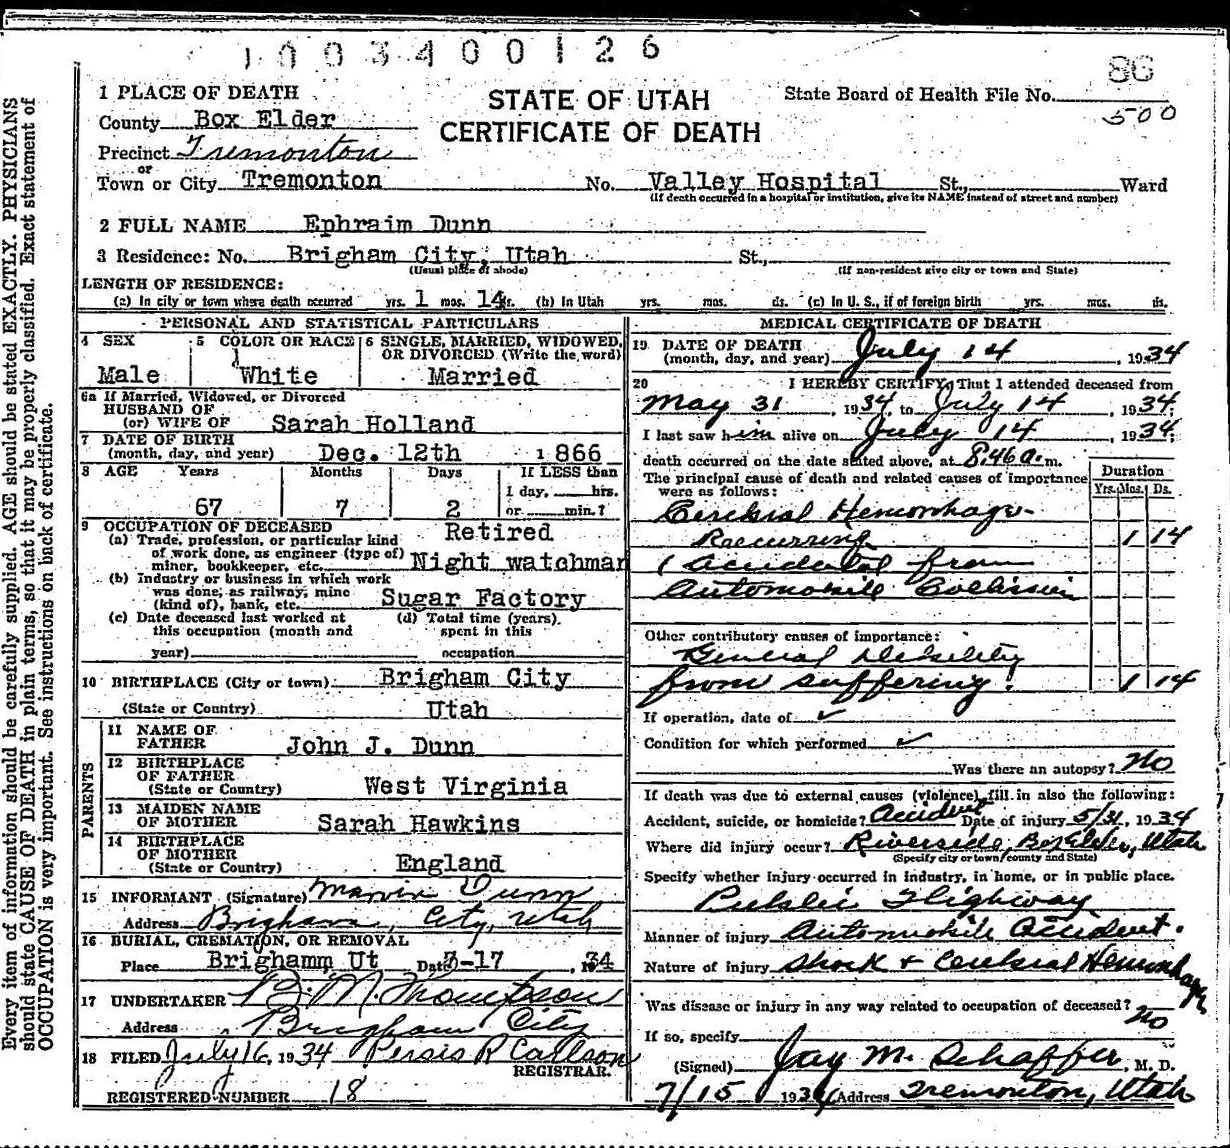 1003400126
86
1 PLACE OF DEATH
STATE OF UTAH
State Board of Health File No.
500
County Box Elder
CERTIFICATE OF DEATH
Precinct Tremonton
or
Town or City Tremonton No. Valley Hospital St., Ward
(If death occurred in a hospital or institution, give its NAME instead of street and number)
2 FULL NAME Ephraim Dunn
3 Residence: No. Brigham City, Utah St.,
(Usual place of abode) (If non-resident give city or town and State)
LENGTH OF RESIDENCE:
(a) In city or town where death occurred yrs. 1 mos. 14 (b) In Utah yrs. mos. ds. (c) In U. S., if of foreign birth yrs. mos. ds.
PERSONAL AND STATISTICAL PARTICULARS
4 SEX 5 COLOR OR RACE 6 SINGLE, MARRIED, WIDOWED,
OR DIVORCED (Write the word)
Male White Married
6a If Married, Widowed, or Divorced
HUSBAND OF
(or) WIFE OF Sarah Holland
7 DATE OF BIRTH
(month, day, and year) Dec. 12th 1866
8 AGE Years Months Days If LESS than
1 day, hrs.
67 7 2 or min.?
9 OCCUPATION OF DECEASED Retired
(a) Trade, profession, or particular kind
of work done, as engineer (type of)
miner, bookkeeper, etc. Night watchman
(b) Industry or business in which work
was done, as railway, mine
(kind of), bank, etc. Sugar Factory
(c) Date deceased last worked at (d) Total time (years)
this occupation (month and spent in this
year) occupation
10 BIRTHPLACE (City or town) Brigham City
(State or Country) Utah
PARENTS
11 NAME OF
FATHER John J. Dunn
12 BIRTHPLACE
OF FATHER
(State or Country) West Virginia
13 MAIDEN NAME
OF MOTHER Sarah Hawkins
14 BIRTHPLACE
OF MOTHER
(State or Country) England
15 INFORMANT (Signature) Dunn
Address Brigham City, Utah
16 BURIAL, CREMATION, OR REMOVAL
Place Brighamm Ut Date -17 , 1934
17 UNDERTAKER B. M. Thompson
Address Brigham City
18 FILED July 16, 1934 Persis R Carlson
REGISTRAR.
REGISTERED NUMBER 18
MEDICAL CERTIFICATE OF DEATH
19 DATE OF DEATH
(month, day, and year) July 14 , 1934
20 I HEREBY CERTIFY, That I attended deceased from
May 31 , 1934, to July 14 , 1934;
I last saw him alive on July 14 , 1934;
death occurred on the date stated above, at 8:46 a. m.
The principal cause of death and related causes of importance
were as follows:
Duration
Yrs. Mos. Ds.
Cerebral Hemorrhage
Reccurring 1 14
Accidental from
Automobile Collision
Other contributory causes of importance:
General Debility
from suffering! 1 14
If operation, date of ✓
Condition for which performed ✓
Was there an autopsy? No
If death was due to external causes (violence) fill in also the following:
Accident, suicide, or homicide? Accident Date of injury 5/31, 1934
Where did injury occur? Riverside, Box Elder, Utah
(Specify city or town, county and State)
Specify whether injury occurred in industry, in home, or in public place.
Public Highway
Manner of injury Automobile Accident.
Nature of injury Shock + Cerebral Hemorrhage
Was disease or injury in any way related to occupation of deceased? No
If so, specify
(Signed) Jay M. Schaffer, M. D.
7/15 1934 Address Tremonton, Utah
Every item of information should be carefully supplied. AGE should be stated EXACTLY. PHYSICIANS
should state CAUSE OF DEATH in plain terms, so that it may be properly classified. Exact statement of
OCCUPATION is very important. See instructions on back of certificate.